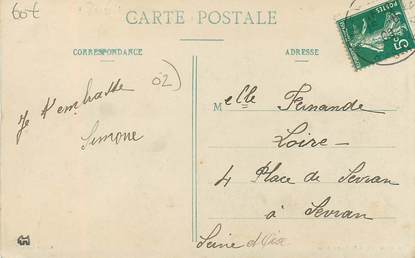 60€
CARTE POSTALE
CORRESPONDANCE
ADRESSE
POSTES
5
02)
Je t'embrasse
Simone
Melle Fernande
Loire
4 Place de Sevran
à Sevran
Seine et Oise